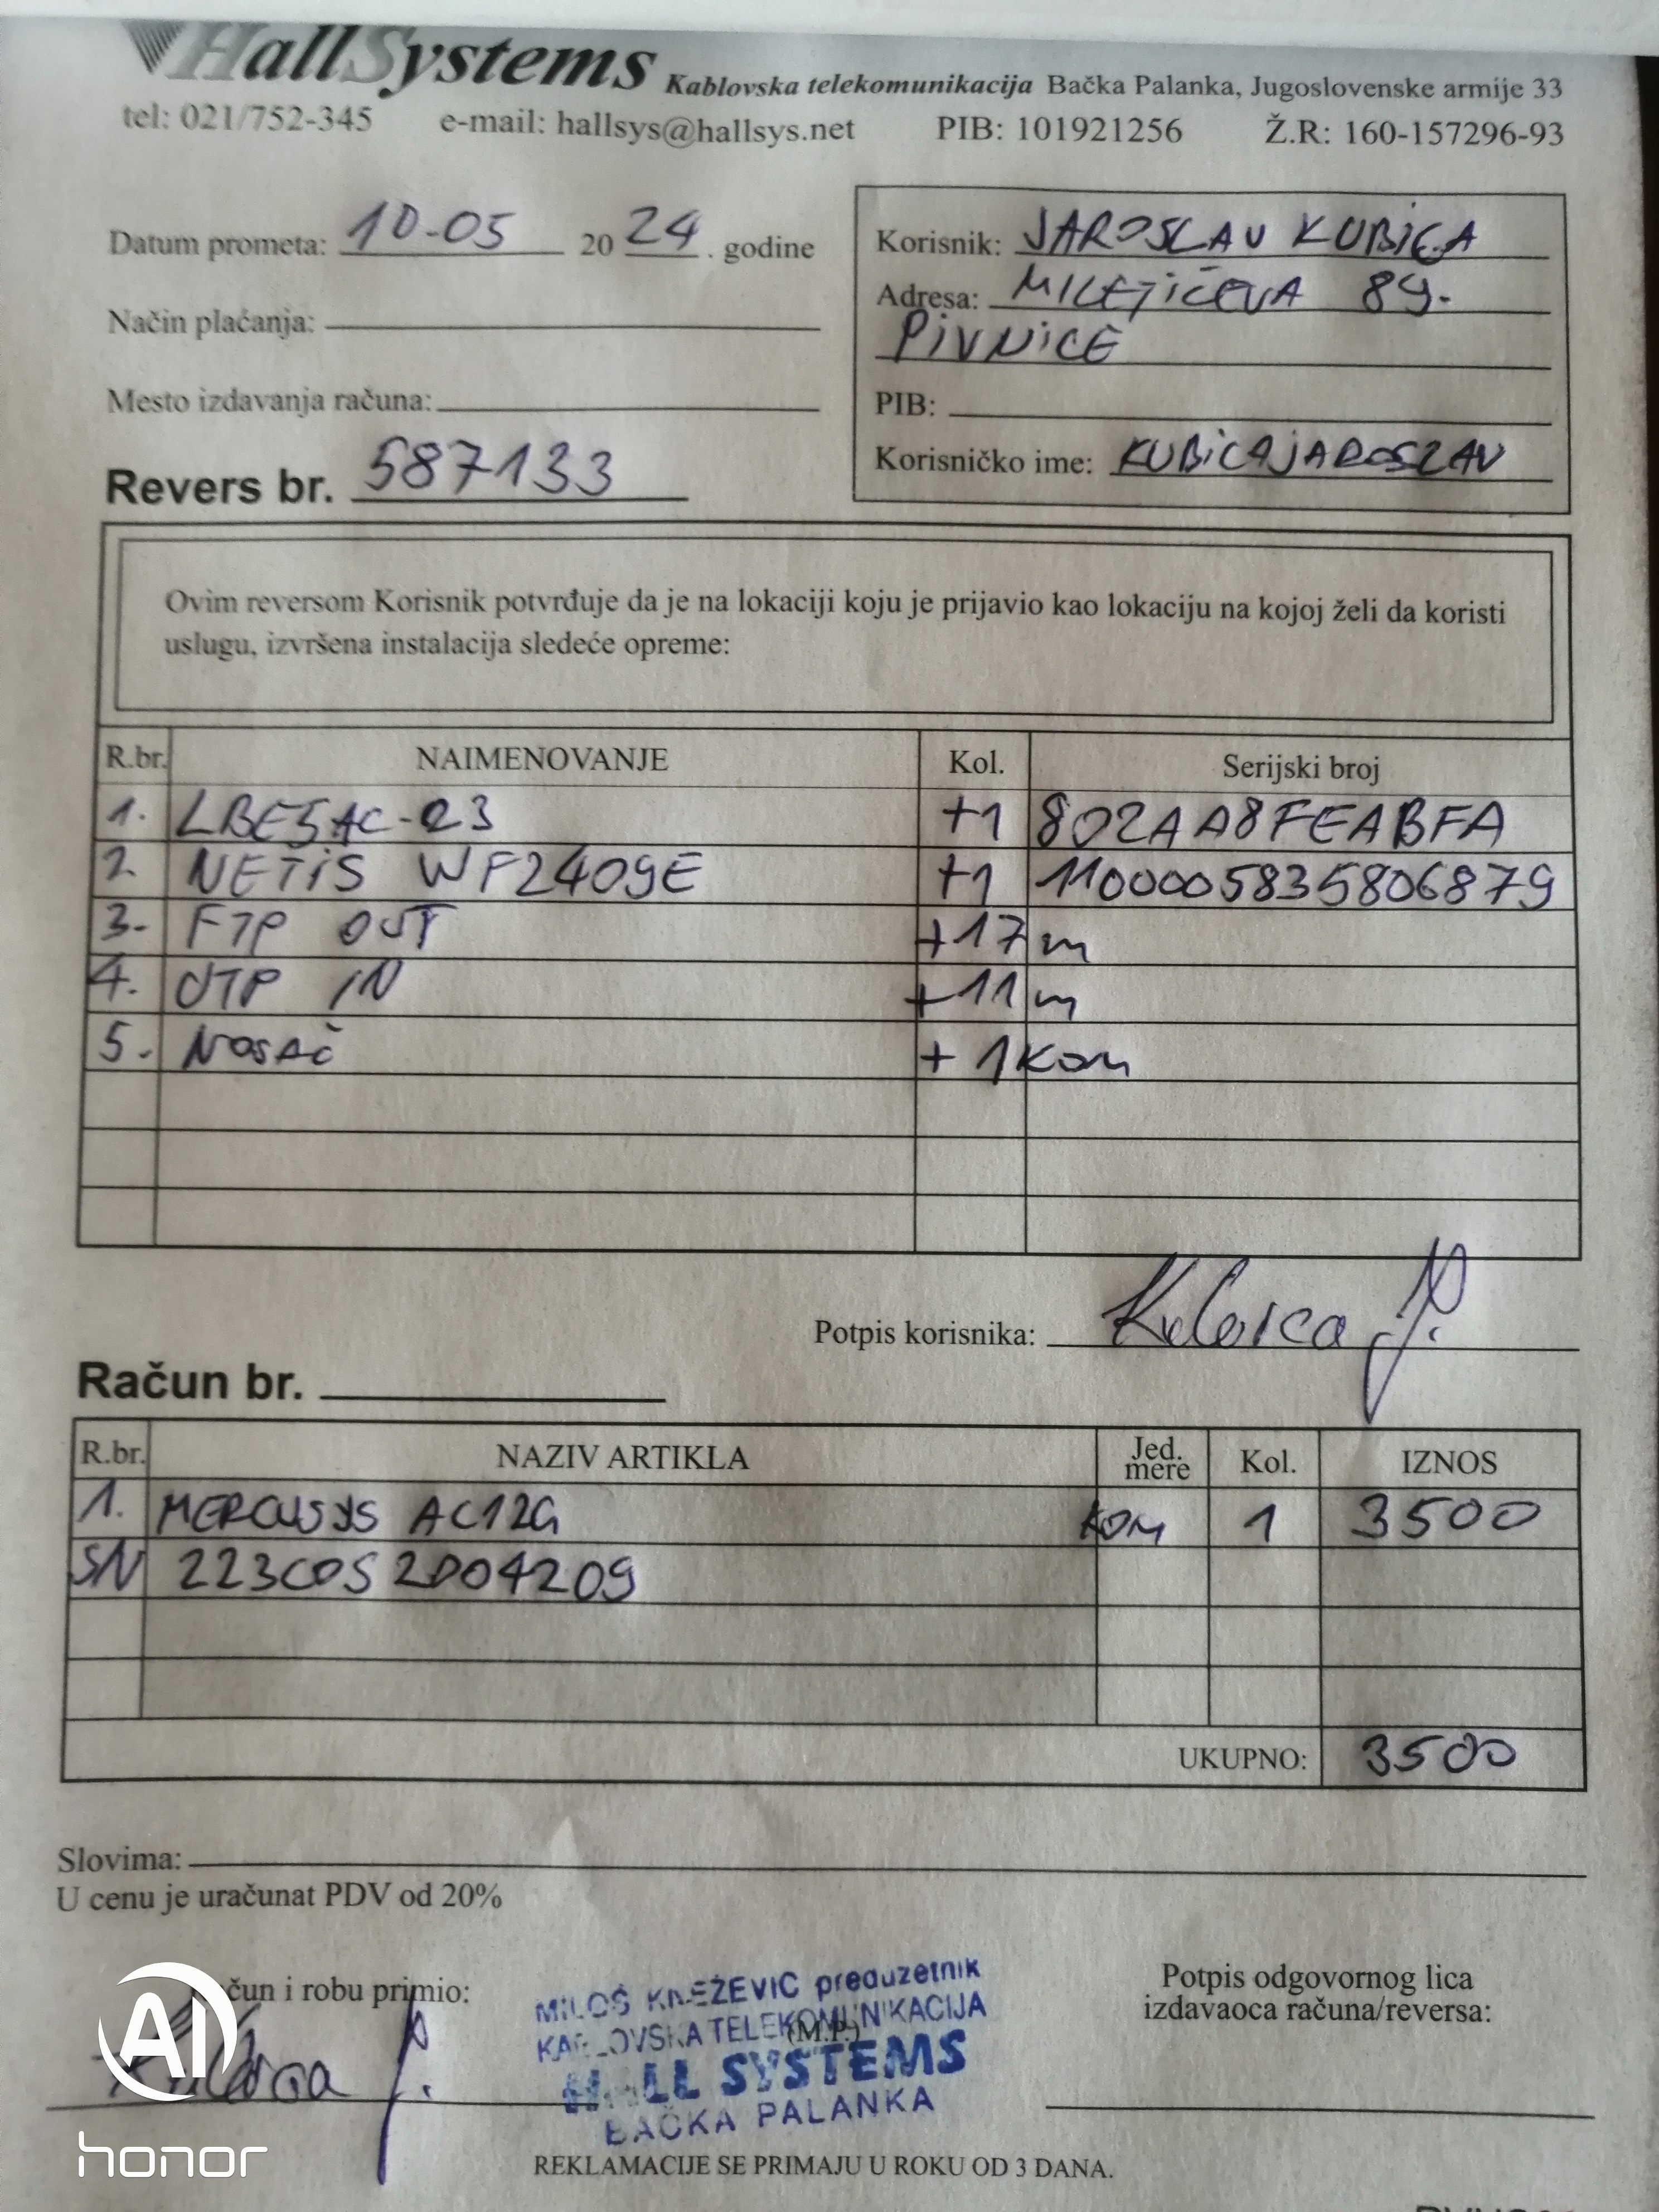 HallSystems Kablovska telekomunikacija Bačka Palanka, Jugoslovenske armije 33
tel: 021/752-345 e-mail: hallsys@hallsys.net PIB: 101921256 Ž.R: 160-157296-93
Datum prometa: 10-05 2024. godine
Korisnik: JAROSLAV KUBICA
Adresa: MILETIĆEVA 89.
PIVNICE
Način plaćanja:
Mesto izdavanja računa:
PIB:
Korisničko ime: KUBICAJAROSLAV
Revers br. 587133
Ovim reversom Korisnik potvrđuje da je na lokaciji koju je prijavio kao lokaciju na kojoj želi da koristi
uslugu, izvršena instalacija sledeće opreme:
R.br. NAIMENOVANJE Kol. Serijski broj
1. LBE5AC-23 +1 802AA8FEABFA
2. NETIS WF2409E +1 1100005835806879
3. FTP OUT +17m
4. UTP IN +11m
5. NOSAČ + 1 KOM
Potpis korisnika: Kubica J.
Račun br.
R.br. NAZIV ARTIKLA Jed. mere Kol. IZNOS
1. MERCUSYS AC12G KOM 1 3500
SN 223C0S2004209
UKUPNO: 3500
Slovima:
U cenu je uračunat PDV od 20%
čun i robu primio:
Kubica J.
MILOŠ KNEŽEVIĆ preduzetnik
KABLOVSKA TELEKOMUNIKACIJA
(M.P.)
HALL SYSTEMS
BAČKA PALANKA
Potpis odgovornog lica
izdavaoca računa/reversa:
REKLAMACIJE SE PRIMAJU U ROKU OD 3 DANA.
AI
honor